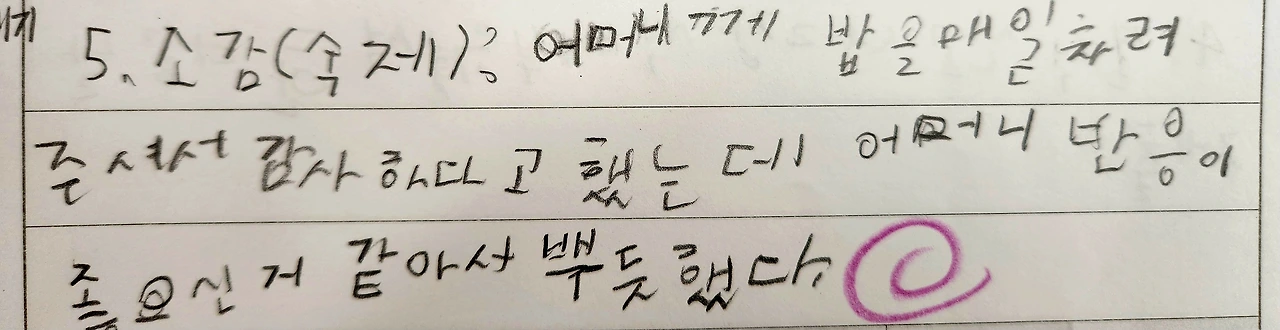 5. 소감(숙제): 어머니께게 밥을매일차려
주셔서 감사하다고 했는데 어머니 반응이
좋으신거 같아서 뿌듯했다.